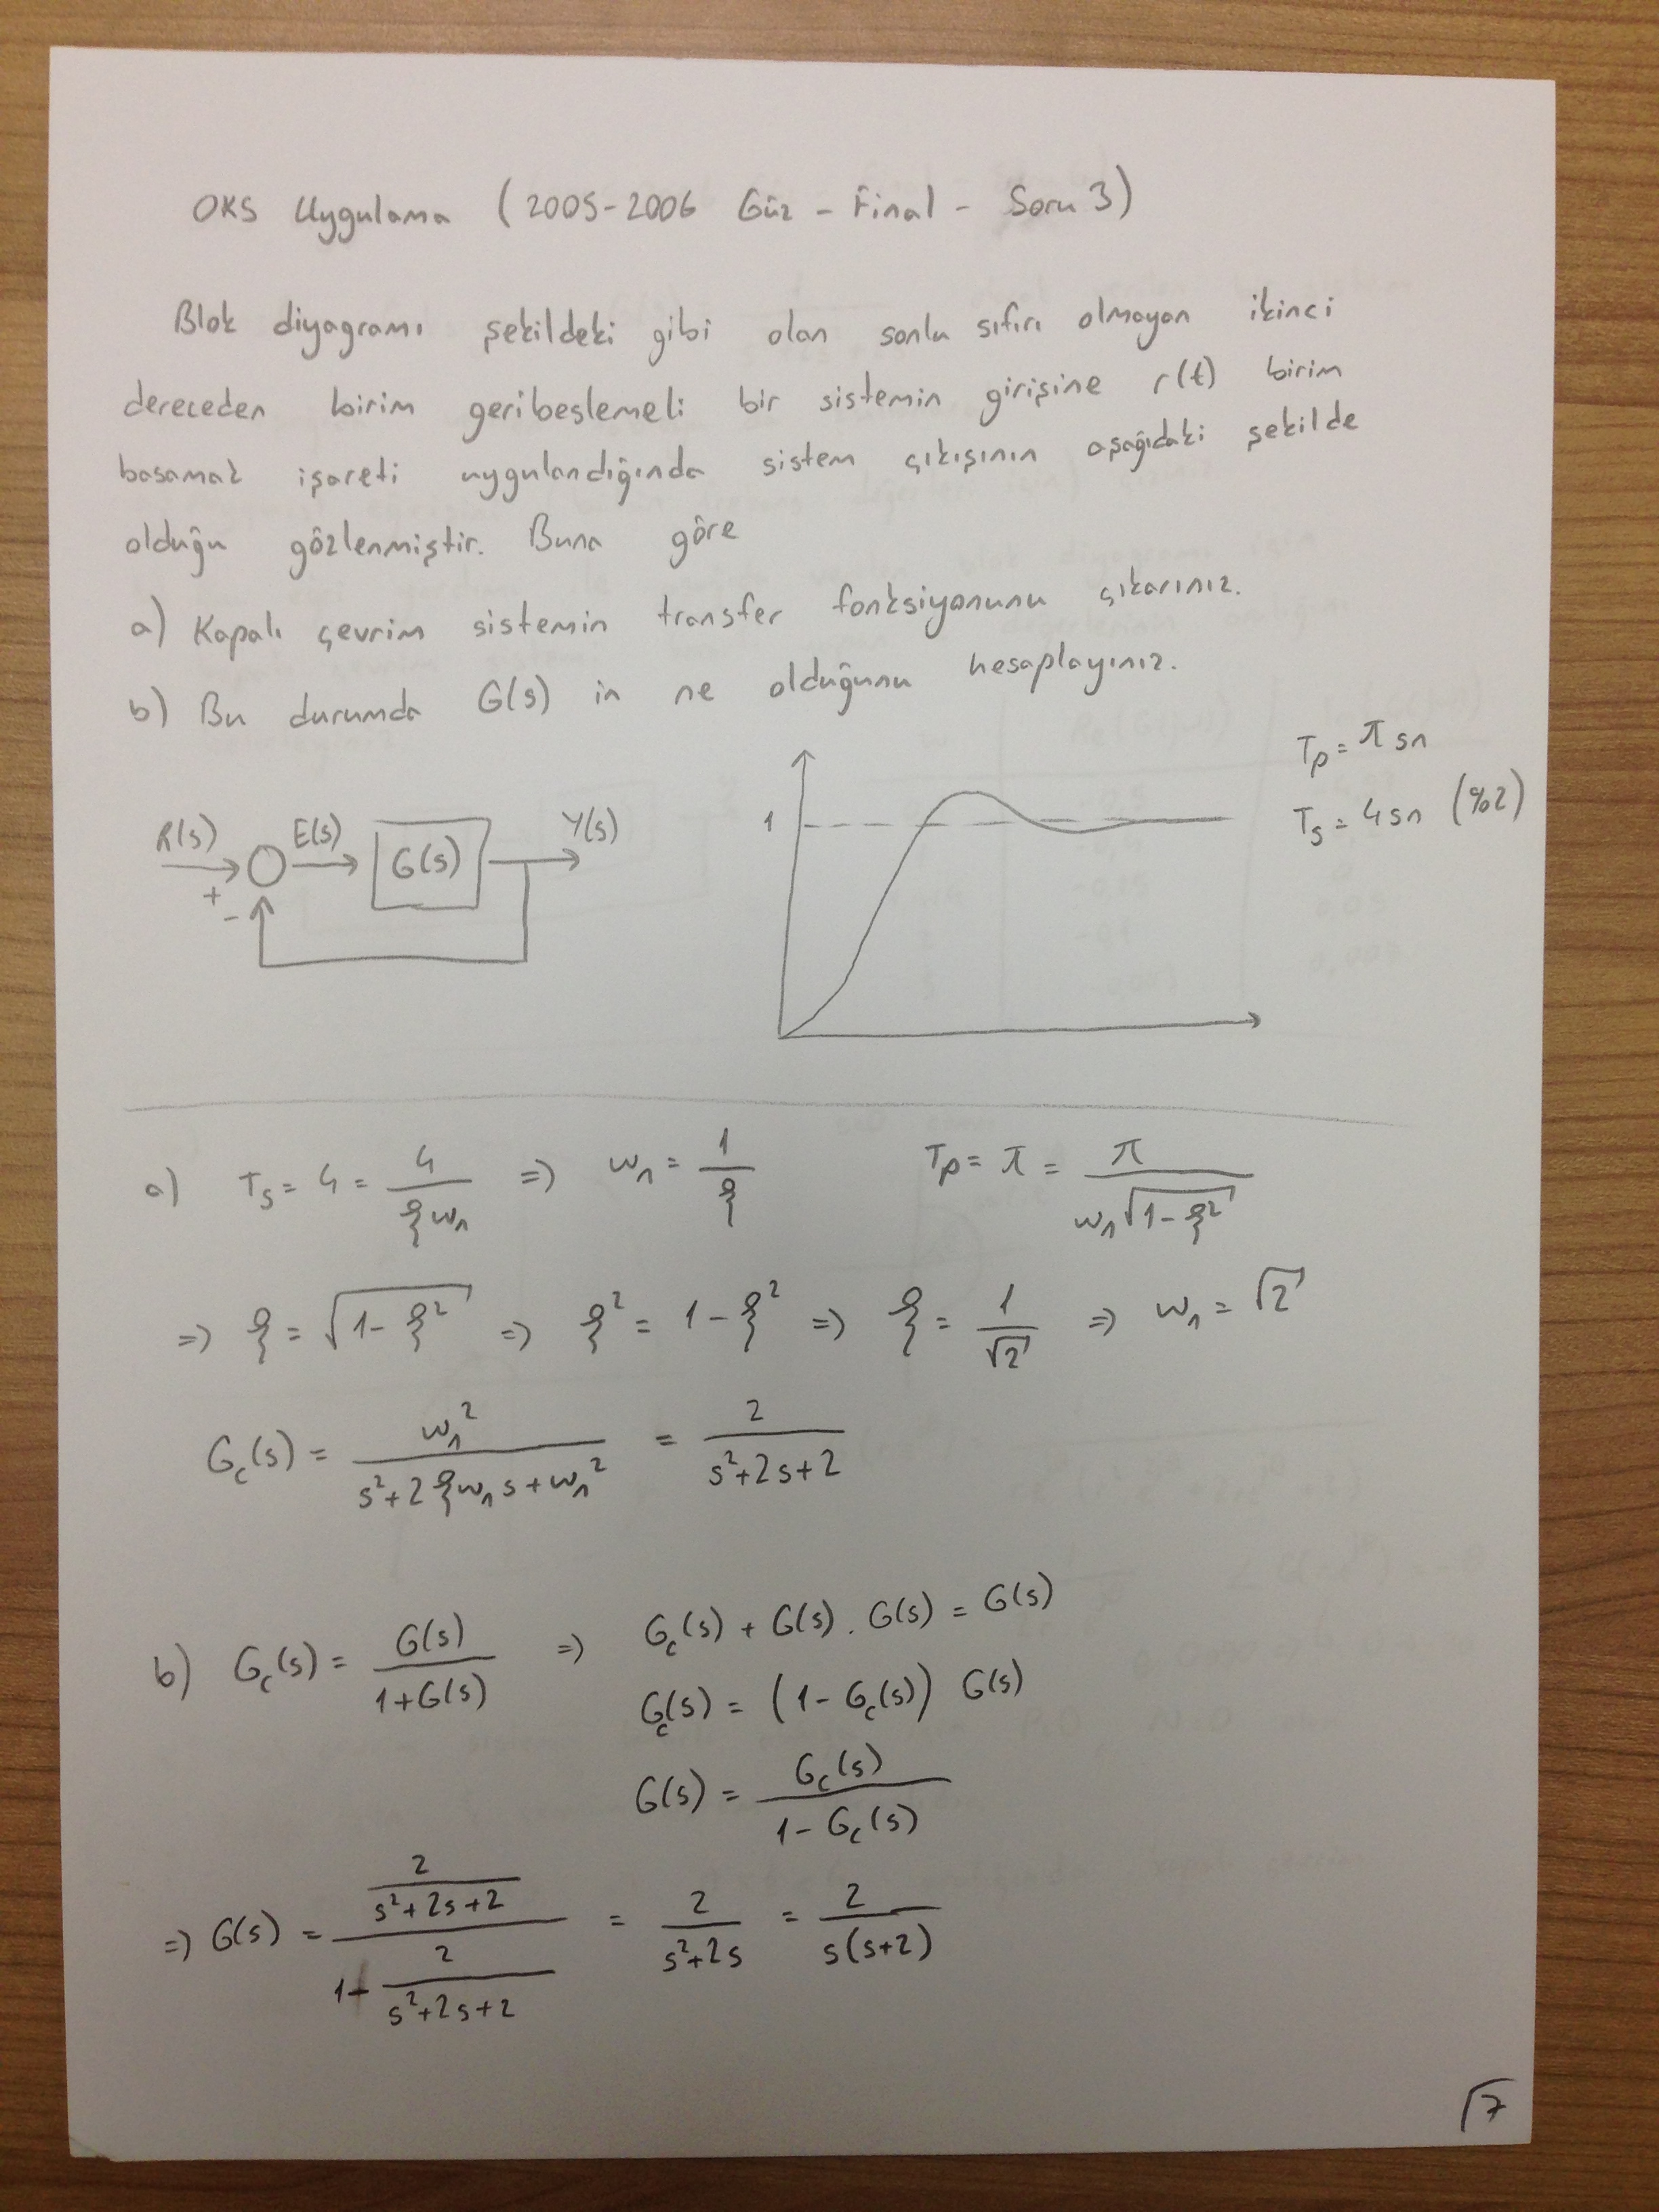 OKS Uygulama (2005-2006 Güz - Final - Soru 3)
Blok diyagramı şekildeki gibi olan sonlu sıfırı olmayan ikinci
dereceden birim geribeslemeli bir sistemin girişine r(t) birim
basamak işareti uygulandığında sistem çıkışının aşağıdaki şekilde
olduğu gözlenmiştir. Buna göre
a) Kapalı çevrim sistemin transfer fonksiyonunu çıkarınız.
b) Bu durumda G(s) in ne olduğunu hesaplayınız.
R(s) + - E(s) G(s) Y(s)
1
Tp = π sn
Ts = 4 sn (%2)
a) Ts = 4 = 4/(ξωn) => ωn = 1/ξ Tp = π = π/(ωn√(1-ξ²))
=> ξ = √(1-ξ²) => ξ² = 1-ξ² => ξ = 1/√2 => ωn = √2
Gc(s) = ωn²/(s²+2ξωns+ωn²) = 2/(s²+2s+2)
b) Gc(s) = G(s)/(1+G(s)) => Gc(s) + G(s) . G(s) = G(s)
Gc(s) = (1-Gc(s)) G(s)
G(s) = Gc(s)/(1-Gc(s))
=> G(s) = (2/(s²+2s+2))/(1-2/(s²+2s+2)) = 2/(s²+2s) = 2/(s(s+2))